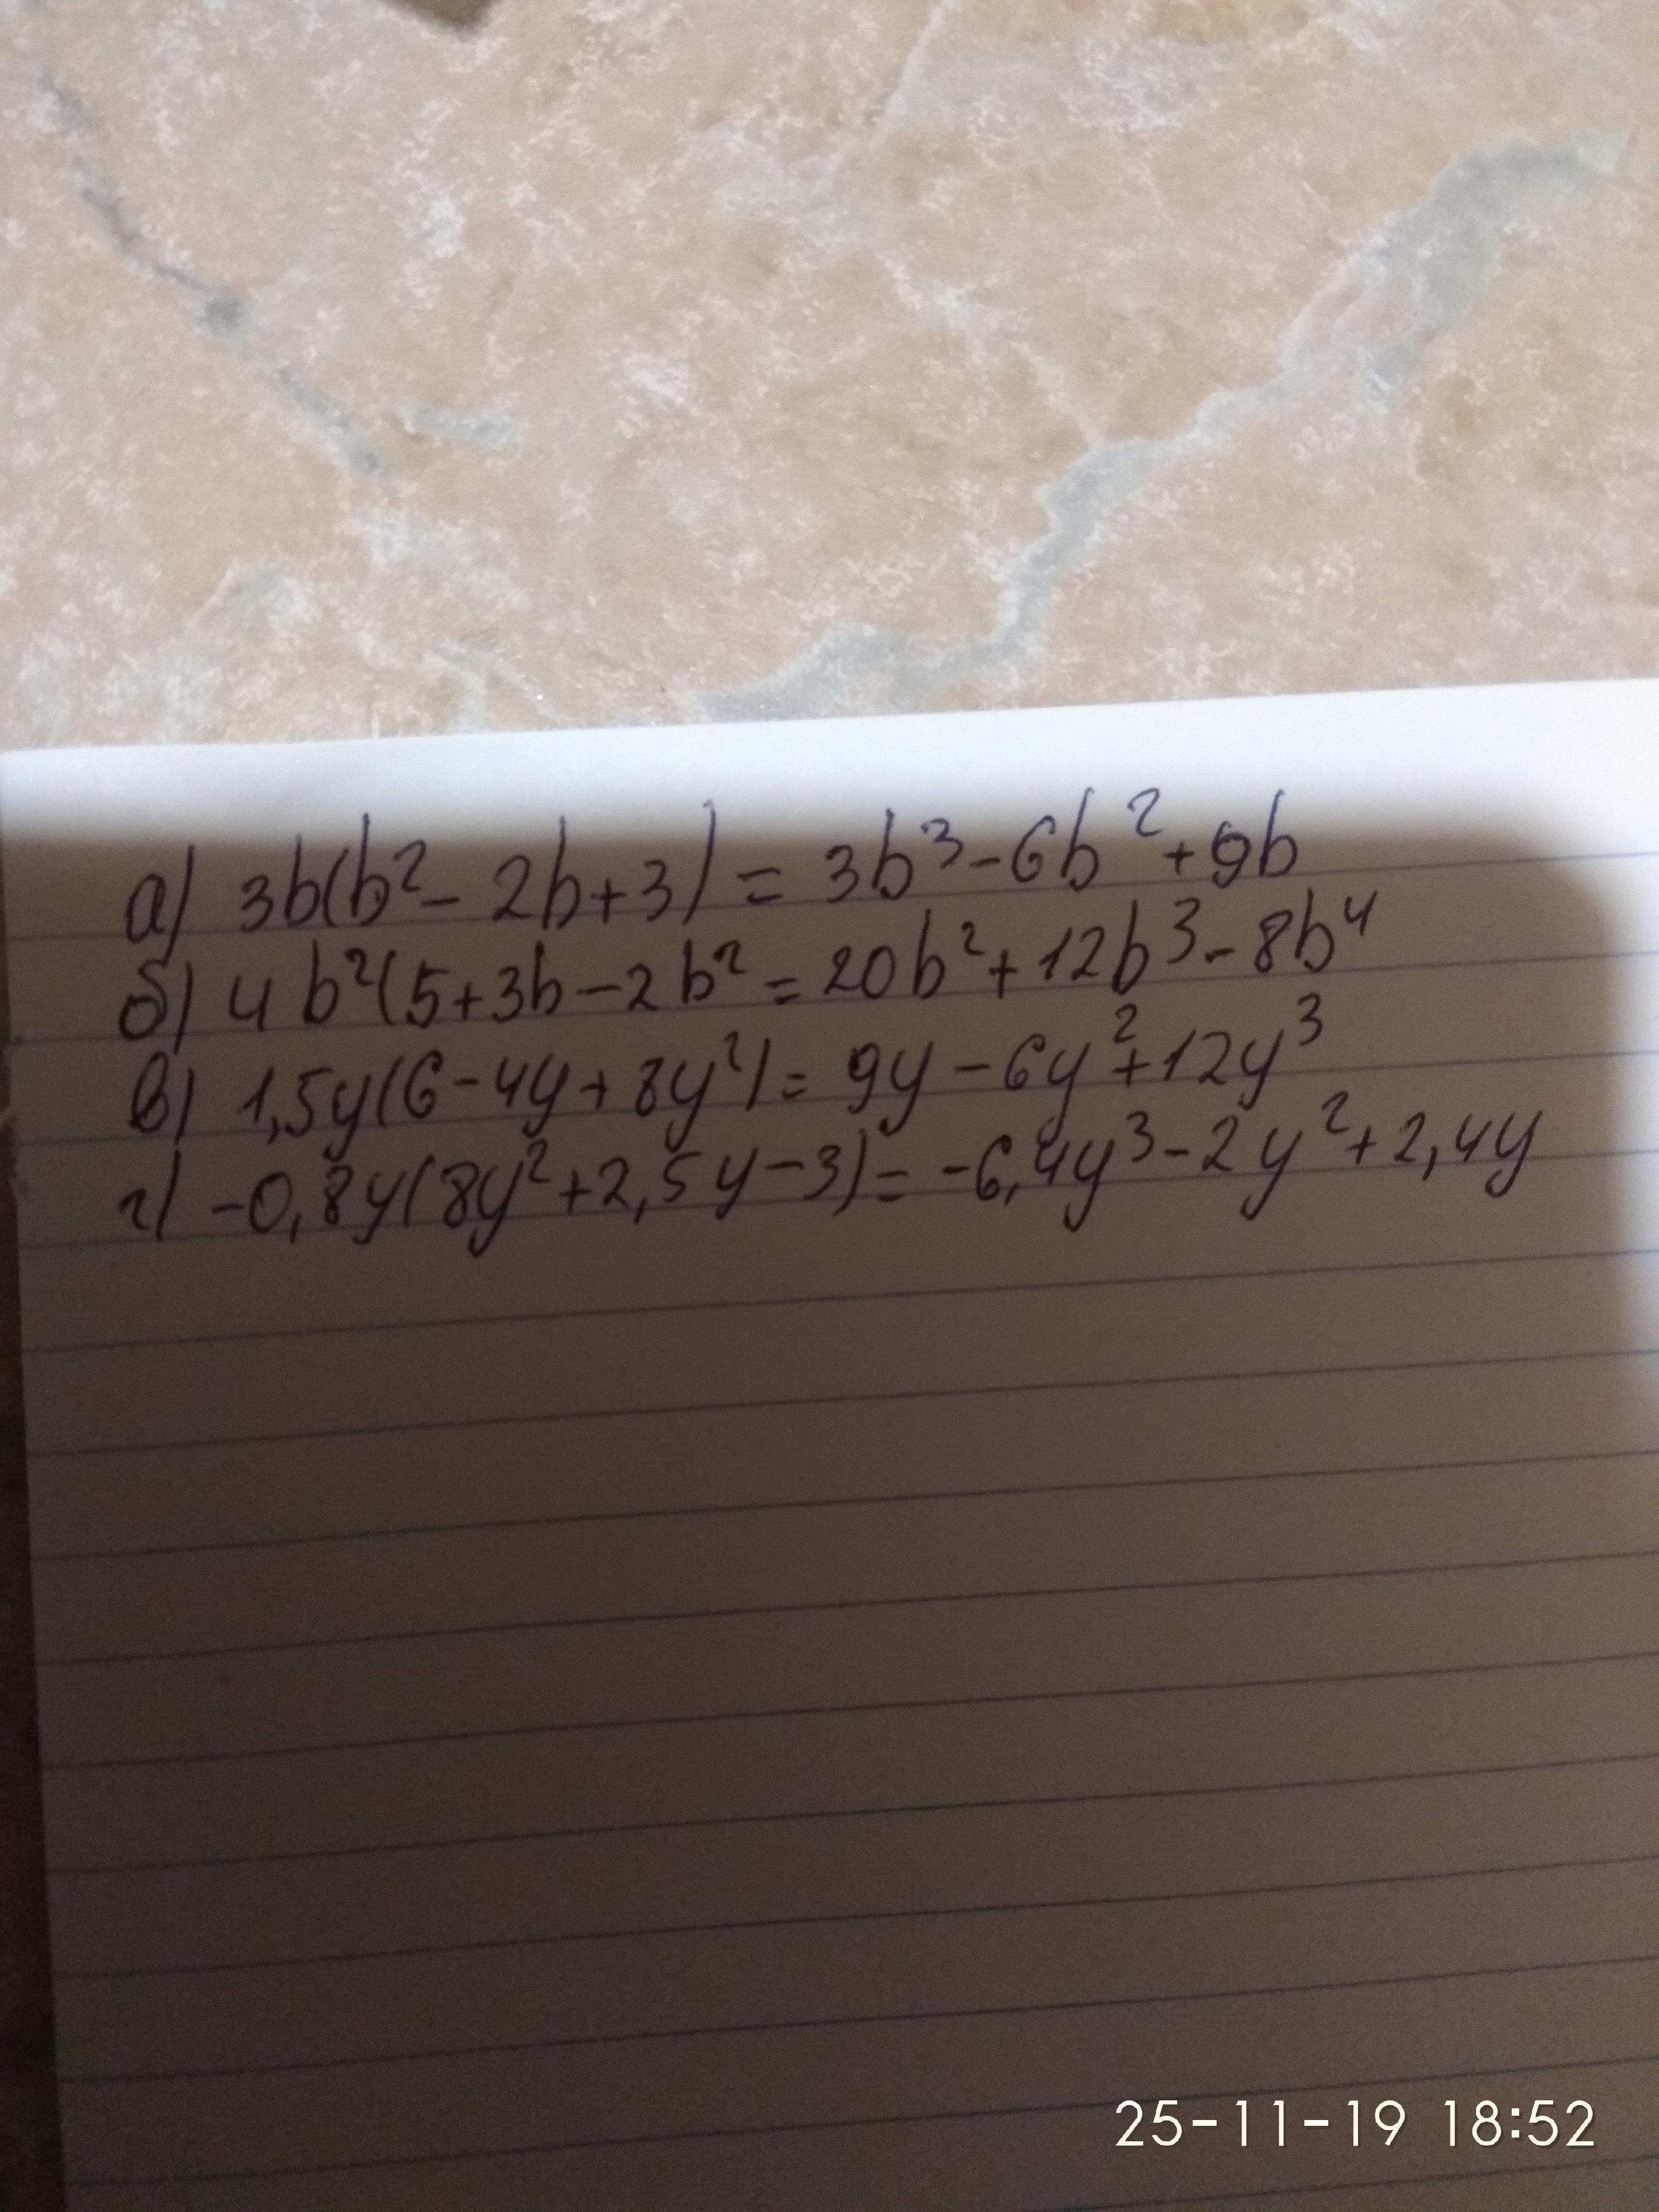 а) 3b(b² - 2b + 3) = 3b³ - 6b² + 9b
б) 4b²(5 + 3b - 2b² = 20b² + 12b³ - 8b⁴
в) 1,5y(6 - 4y + 8y²) = 9y - 6y² + 12y³
г) -0,8y(8y² + 2,5y - 3) = -6,4y³ - 2y² + 2,4y
25-11-19 18:52